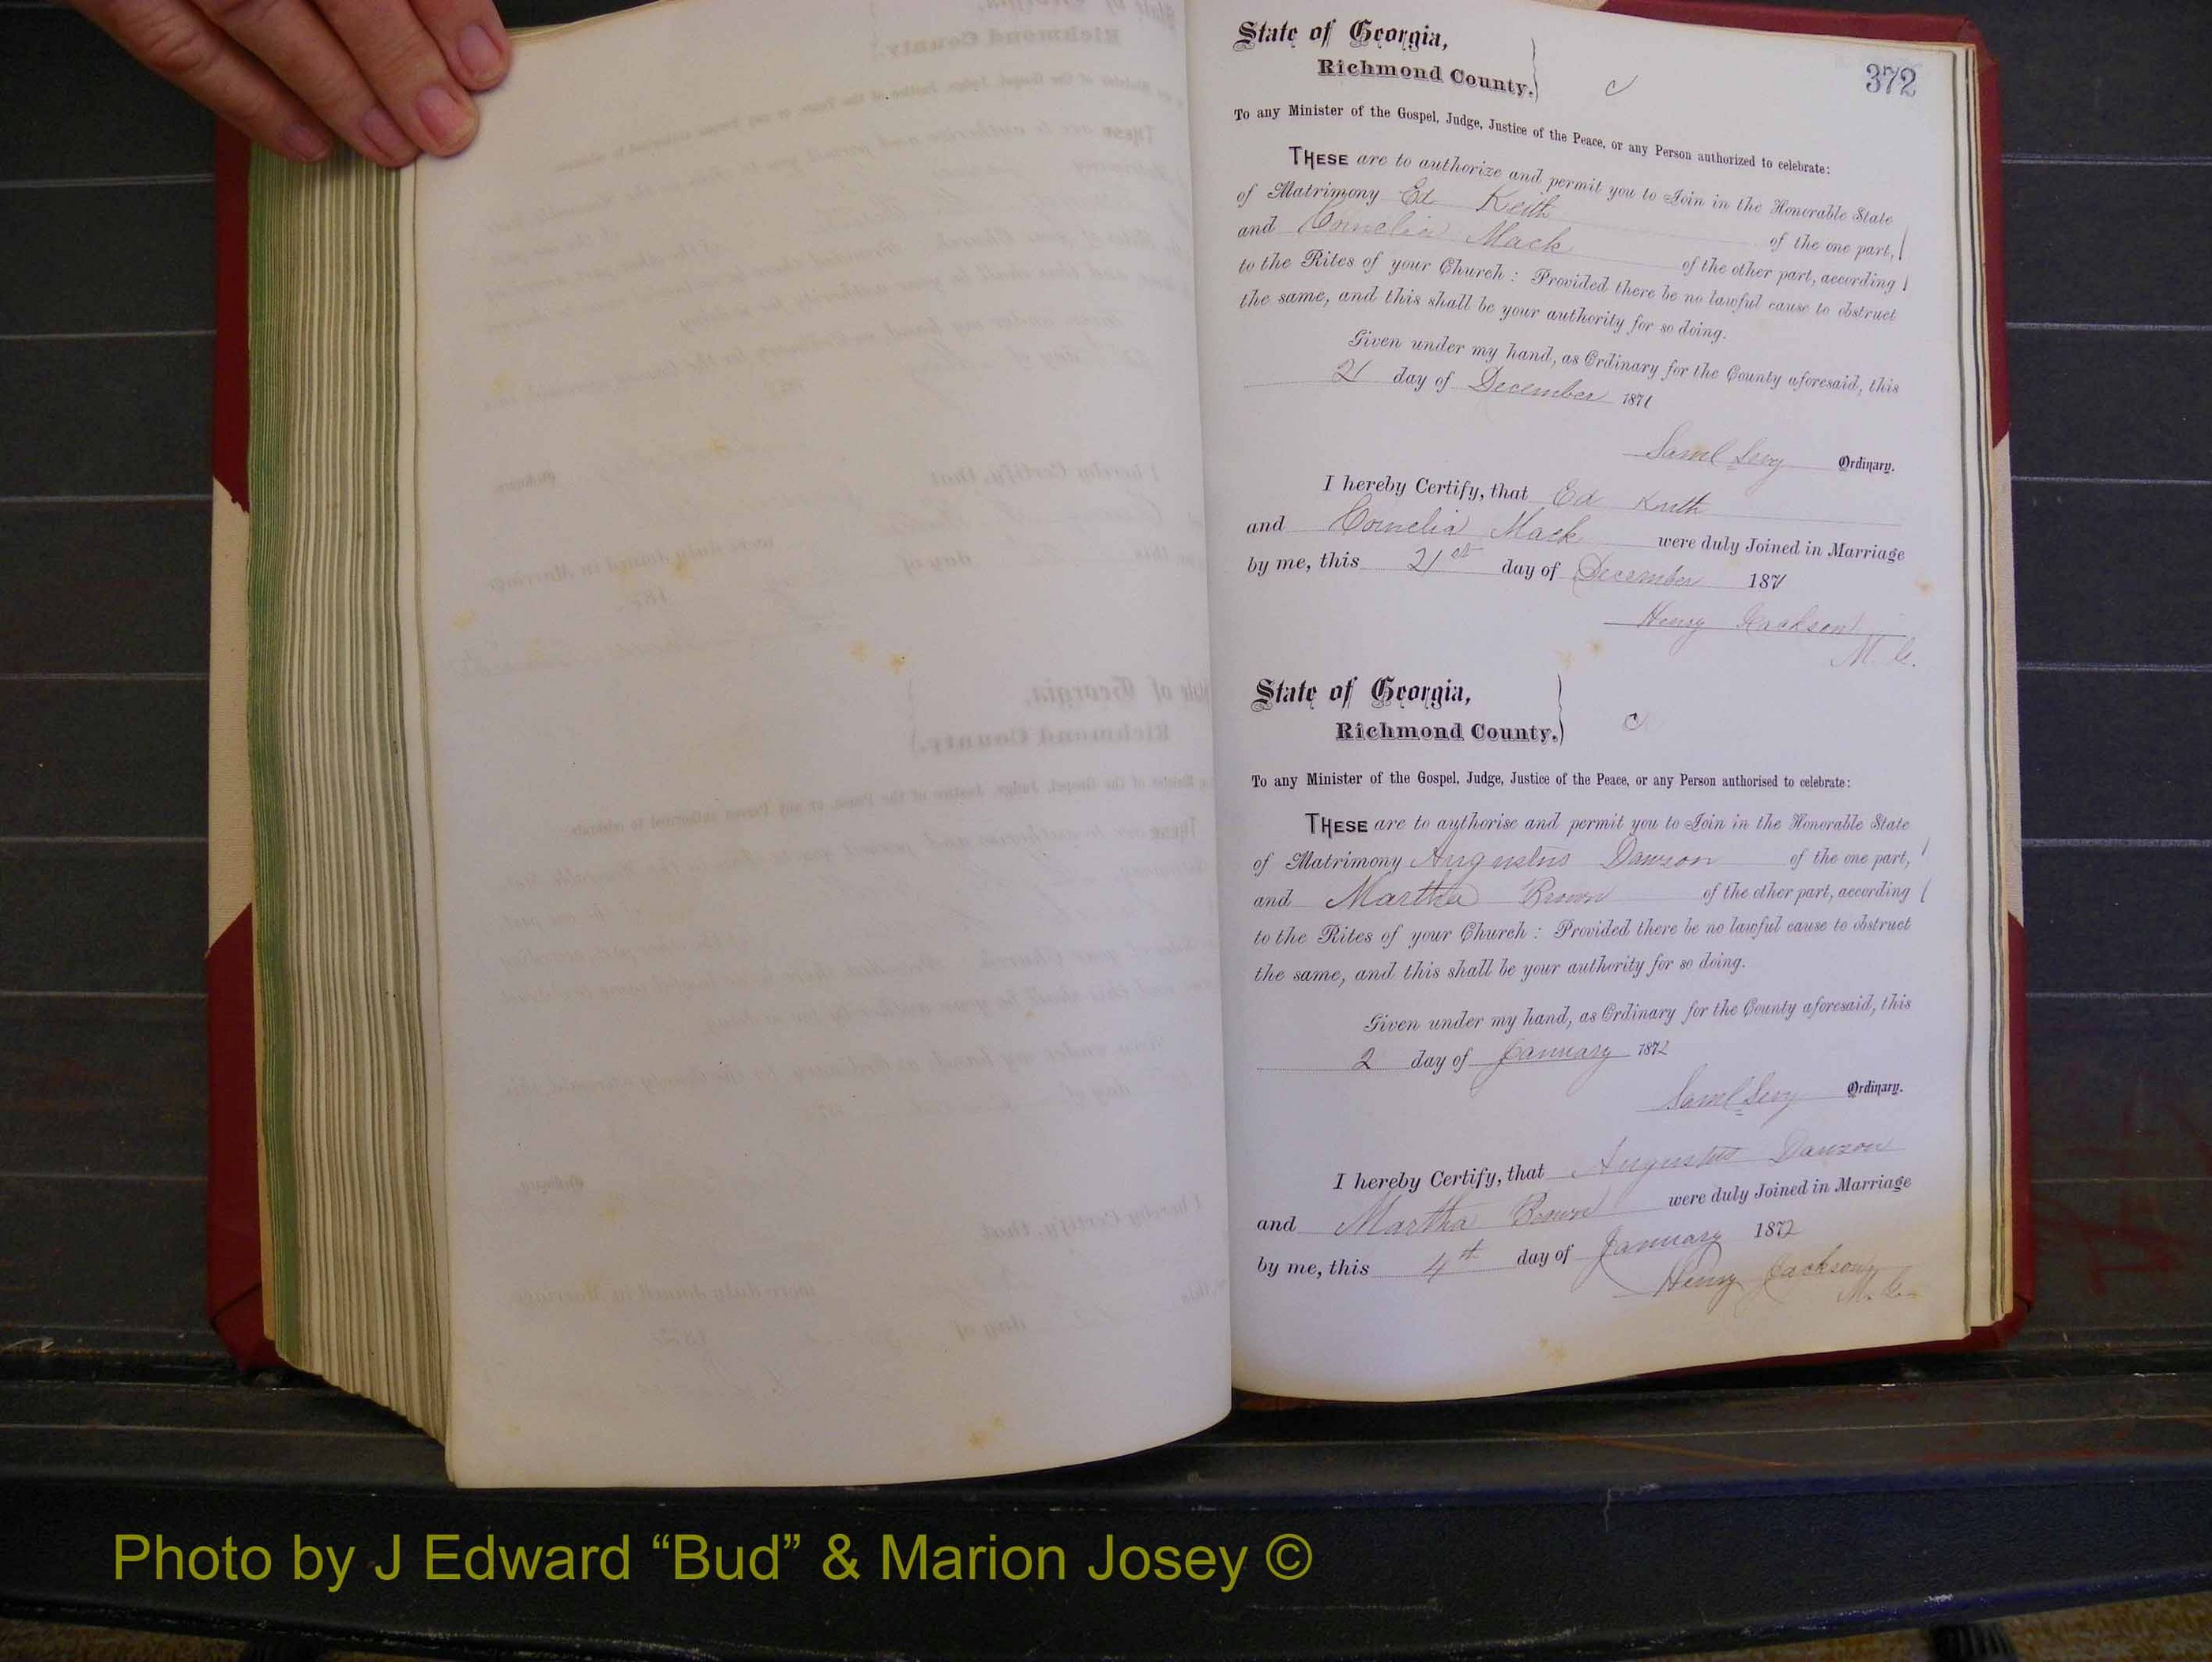 372
State of Georgia,
Richmond County.
C
To any Minister of the Gospel, Judge, Justice of the Peace, or any Person authorized to celebrate:
THESE are to authorize and permit you to Join in the Honorable State
of Matrimony Ed Keith of the one part,
and Cornelia Mack of the other part, according
to the Rites of your Church : Provided there be no lawful cause to obstruct
the same, and this shall be your authority for so doing.
Given under my hand, as Ordinary for the County aforesaid, this
21 day of December 1871
Saml Levy Ordinary.
I hereby Certify, that Ed Keith
and Cornelia Mack were duly Joined in Marriage
by me, this 21st day of December 1871
Henry Jackson
M. G.
State of Georgia,
Richmond County.
C
To any Minister of the Gospel, Judge, Justice of the Peace, or any Person authorised to celebrate:
THESE are to authorise and permit you to Join in the Honorable State
of Matrimony Augustus Dawson of the one part,
and Martha Brown of the other part, according
to the Rites of your Church : Provided there be no lawful cause to obstruct
the same, and this shall be your authority for so doing.
Given under my hand, as Ordinary for the County aforesaid, this
2 day of January 1872
Saml Levy Ordinary.
I hereby Certify, that Augustus Dawson
and Martha Brown were duly Joined in Marriage
by me, this 4th day of January 1872
Henry Jackson
M. G.
Photo by J Edward “Bud” & Marion Josey ©